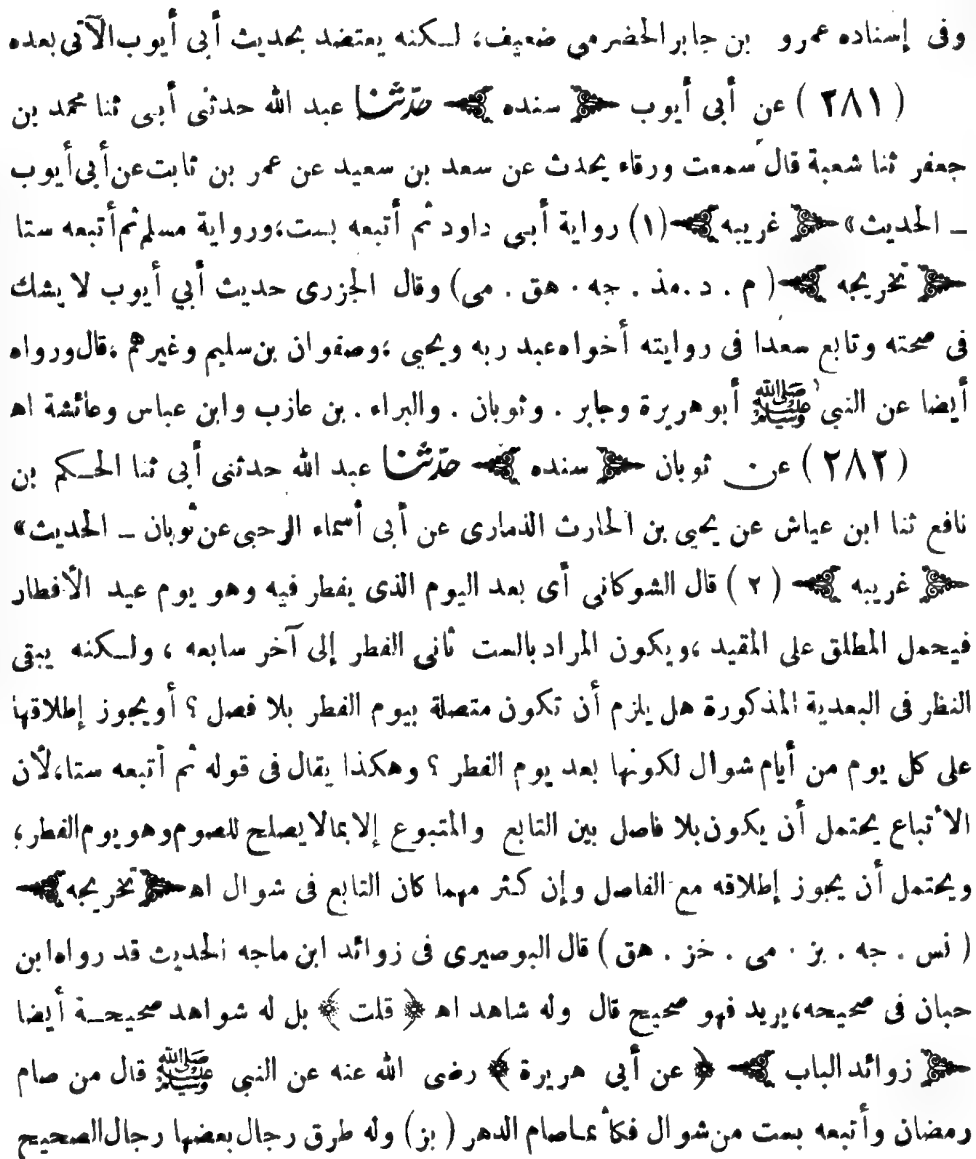 وفى إسناده عمرو بن جابر الحضرمى ضعيف، لكنه يعتضد بحديث أبى أيوب الآتى بعده
( ٢٨١ ) عن أبى أيوب ﴿ سنده ﴾ حدّثنا عبد الله حدثنى أبى ثنا محمد بن
جعفر ثنا شعبة قال سمعت ورقاء يحدث عن سعد بن سعيد عن عمر بن ثابت عن أبى أيوب
ــ الحديث» ﴿ غريبه ﴾ (١) رواية أبى داود ثم أتبعه بست، ورواية مسلم ثم أتبعه ستا
﴿ تخريجه ﴾ ( م . د . مذ . جه . هق . مى) وقال الجزرى حديث أبي أيوب لا يشك
فى صحته وتابع سعدا فى روايته أخواه عبد ربه ويحيى ، وصفوان بن سليم وغيرهم ، قال ورواه
أيضا عن النبى ﷺ أبو هريرة وجابر . وثوبان . والبراء . بن عازب وابن عباس وعائشة اهـ
( ٢٨٢ ) عن ثوبان ﴿ سنده ﴾ حدّثنا عبد الله حدثنى أبى ثنا الحكم بن
نافع ثنا ابن عياش عن يحيى بن الحارث الذمارى عن أبى أسماء الرحبى عن ثوبان ــ الحديث»
﴿ غريبه ﴾ ( ٢ ) قال الشوكانى أى بعد اليوم الذى يفطر فيه وهو يوم عيد الأفطار
فيحمل المطلق على المقيد ، ويكون المراد بالست ثانى الفطر إلى آخر سابعه ، ولكنه يبقى
النظر فى البعدية المذكورة هل يلزم أن تكون متصلة بيوم الفطر بلا فصل ؟ أو يجوز إطلاقها
على كل يوم من أيام شوال لكونها بعد يوم الفطر ؟ وهكذا يقال فى قوله ثم أتبعه ستا، لأن
الأتباع يحتمل أن يكون بلا فاصل بين التابع والمتبوع إلا بما لا يصلح للصوم وهو يوم الفطر ،
ويحتمل أن يجوز إطلاقه مع الفاصل وإن كثر مهما كان التابع فى شوال اهـ ﴿ تخريجه ﴾
( نس . جه . بز . مى . خز . هق ) قال البوصيرى فى زوائد ابن ماجه الحديث قد رواه ابن
حبان فى صحيحه، يريد فهو صحيح قال وله شاهد اهـ ﴿ قلت ﴾ بل له شواهد صحيحة أيضا
﴿ زوائد الباب ﴾ ﴿ عن أبى هريرة ﴾ رضى الله عنه عن النبى ﷺ قال من صام
رمضان وأتبعه بست من شوال فكأنما صام الدهر ( بز) وله طرق رجال بعضها رجال الصحيح